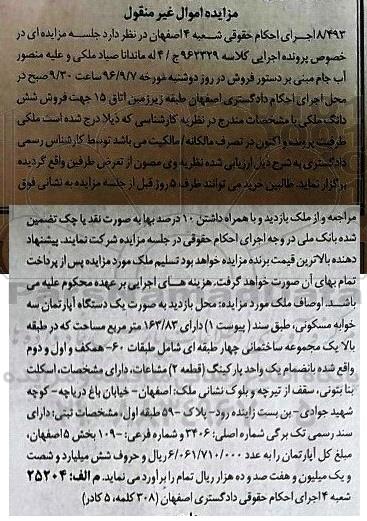 مزایده اموال غیر منقول
۸/۴۹۳ اجرای احکام حقوقی شعبه ۴ اصفهان در نظر دارد جلسه مزایده ای در
خصوص پرونده اجرایی کلاسه ۹۶۲۳۲۹ ج / ۴ له ماندانا صیاد ملکی و علیه منصور
آب جام مبنی بر دستور فروش در روز دوشنبه مورخه ۹۶/۹/۷ ساعت ۹/۳۰ صبح در
محل اجرای احکام دادگستری اصفهان طبقه زیرزمین اتاق ۱۵ جهت فروش شش
دانگ ملکی با مشخصات مندرج در نظریه کارشناسی که ذیلا درج شده است ملکی
طرفیت پرونده و اکنون در تصرف مالکانه / مالکیت می باشد توسط کارشناس رسمی
دادگستری به شرح ذیل ارزیابی شده نظریه وی مصون از تعرض طرفین واقع گردیده
برگزار نماید. طالبین خرید می توانند ظرف ۵ روز قبل از جلسه مزایده به نشانی فوق
مراجعه و از ملک بازدید و با همراه داشتن ۱۰ درصد بها به صورت نقد یا چک تضمین
شده بانک ملی در وجه اجرای احکام حقوقی در جلسه مزایده شرکت نمایند. پیشنهاد
دهنده بالاترین قیمت برنده مزایده خواهد بود تسلیم ملک مورد مزایده پس از پرداخت
تمام بهای آن صورت خواهد گرفت. هزینه های اجرایی بر عهده محکوم علیه می
باشد. اوصاف ملک مورد مزایده: محل بازدید به صورت یک دستگاه آپارتمان سه
خوابه مسکونی، طبق سند ( پیوست ۱) دارای ۱۶۳/۸۳ متر مربع مساحت که در طبقه
بالا یک مجموعه ساختمانی چهار طبقه ای شامل طبقات ۶۰- همکف و اول و دوم
واقع شده بانضمام یک واحد پارکینگ (قطعه ۲) مشاعات، دارای مشخصات، اسکلت
بنا بتونی، سقف از تیرچه و بلوک نشانی ملک: اصفهان- خیابان باغ دریاچه- کوچه
شهید جوادی- بن بست زاینده رود- پلاک ۵۹- طبقه اول، مشخصات ثبتی: دارای
سند رسمی تک برگی شماره اصلی: ۳۴۰۶ و شماره فرعی: ۱۰۹۰- بخش ۵ اصفهان،
مبلغ کل آپارتمان را به عدد ۶/۰۶۱/۷۱۰/۰۰۰ ریال و حروف شش میلیارد و شصت
و یک میلیون و هفت صد و ده هزار ریال تمام را برآورد می نماید. م الف: ۲۵۲۰۴
شعبه ۴ اجرای احکام حقوقی دادگستری اصفهان (۳۰۸ کلمه، ۵ کادر)